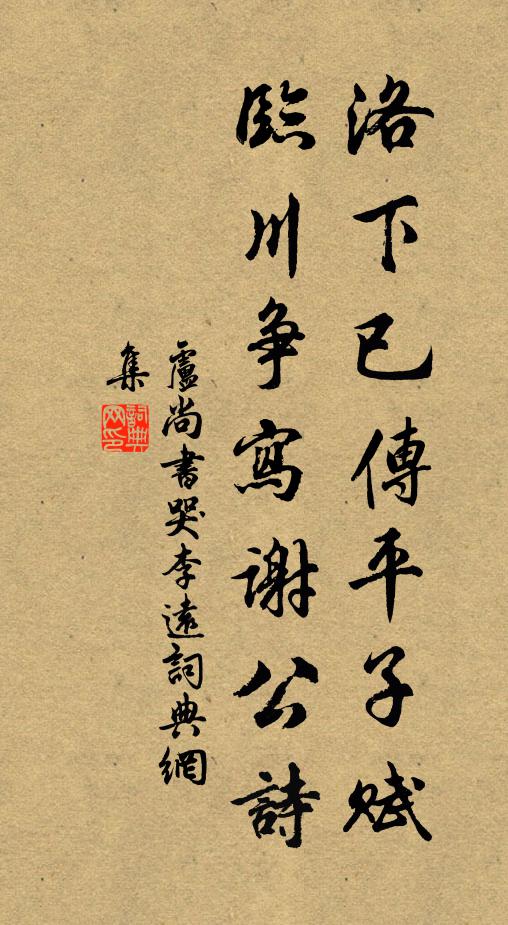 洛下已傳平子賦
臨川爭寫謝公詩
盧尚書哭李遠詞典網
集
詞典網印